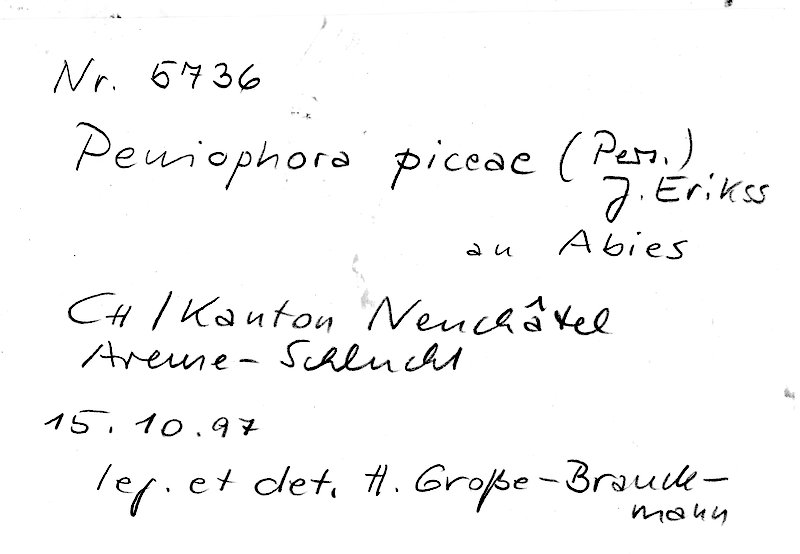 Nr. 5736
Peniophora piceae (Pers.)
J. Erikss
an Abies
CH / Kanton Neuchâtel
Areuse - Schlucht
15. 10. 97
leg. et det. H. Große-Brauck-
mann